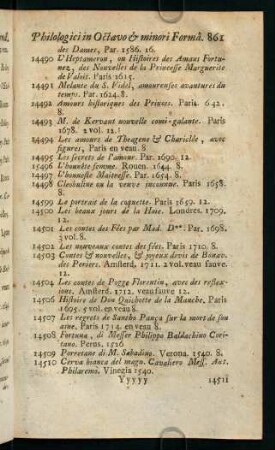 Philologici in Octavo & minori Formâ. 861
des Dames, Par. 1586. 16.
14490 L'Heptameron, ou Histoires des Amans Fortunez, des Nouvelles de la Princesse Marguerite
de Valois. Paris 1615.
14491 Melante du S. Videl, amoureuses avantures du
temps. Par. 1624. 8.
14492 Amours historiques des Princes. Paris. 642.
8.
14493 M. de Kervant nouvelle comi-galante. Paris
1678. 2 vol. 12.
14494 Les amours de Theagene & Chariclée, avec
figures, Paris en veau 8
14495 Les secrets de l'amour. Par. 1690. 12.
14496 L'honneste femme. Rouen. 1644. 8.
14497 L'honneste Maitresse. Par. 1654. 8.
14498 Cleobuline ou la veuve inconnue. Paris 1658.
8.
14499 Le portrait de la coquette. Paris 1659. 12.
14500 Les beaux jours de la Haie. Londres. 1709.
12.
14501 Les contes des Fées par Mad. D**. Par. 1698.
3 vol. 8.
14502 Les nouveaux contes des fées. Paris 1710. 8.
14503 Contes & nouvelles, & joyeux devis de Bonav.
des Periers. Amsterd. 1711. 2 vol. veau fauve.
12.
14504 Les contes de Pogge Florentin, avec des reflexions. Amsterd. 1712. veau fauve 12.
14506 Histoire de Don Quichotte de la Manche. Paris
1695. 5 vol. en veau 8.
14507 Les regrets de Sancho Pança sur la mort de son
asne. Paris 1714. en veau. 8
14508 Fortuna, di Messer Philippo Baldachino Coritano. Perus. 1526
14509 Porretane di M. Sabadino. Verona. 1540. 8.
14510 Cerva bianca del magn. Cavaliero Mess. Ant.
Phileremo. Vinegia 1540.
Yyyyy 14511